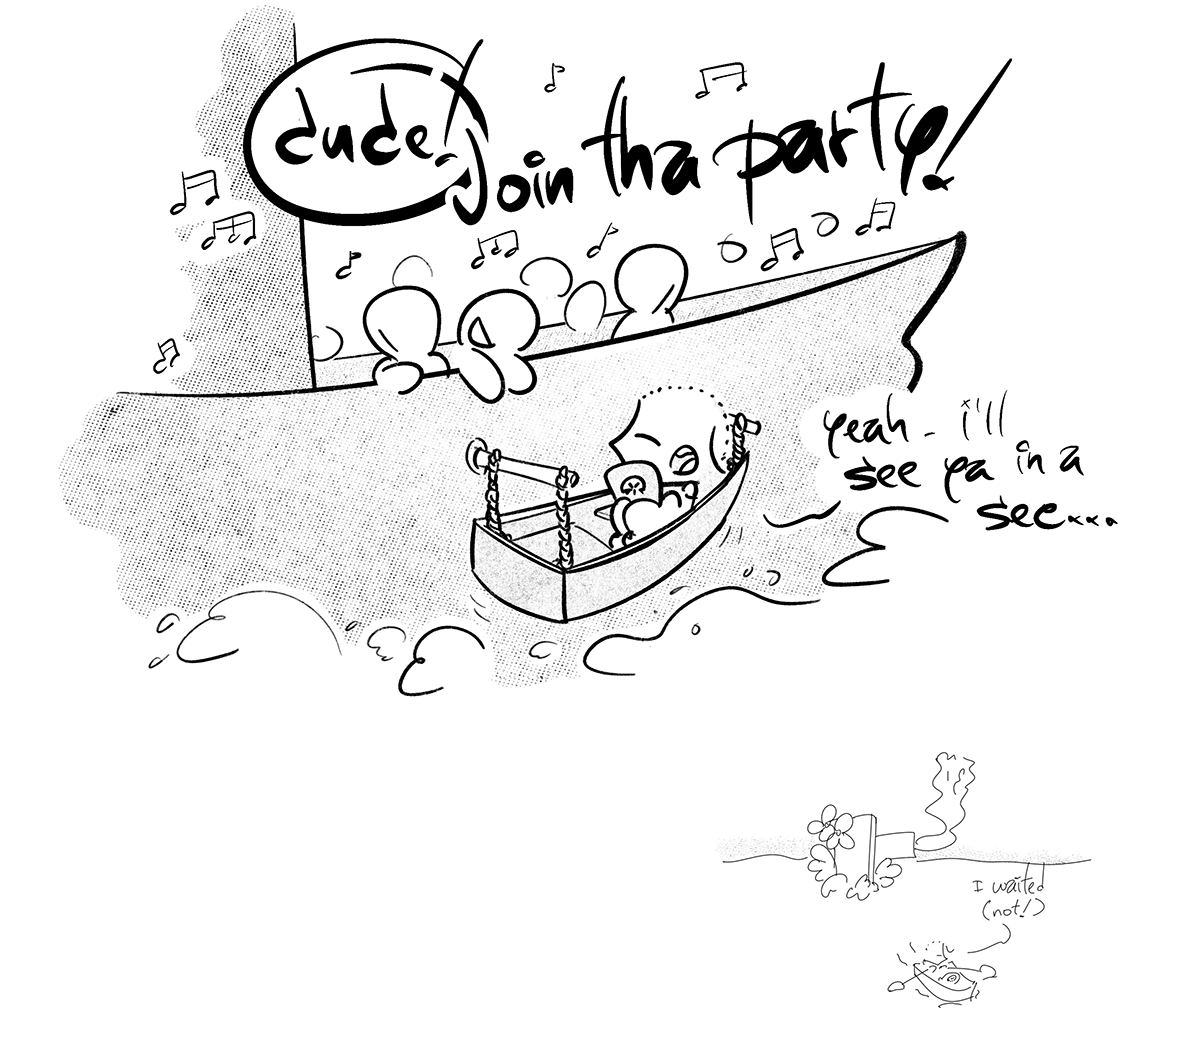 dude!
Join tha party!
yeah - i'll
see ya in a
see...
I waited
(not!)